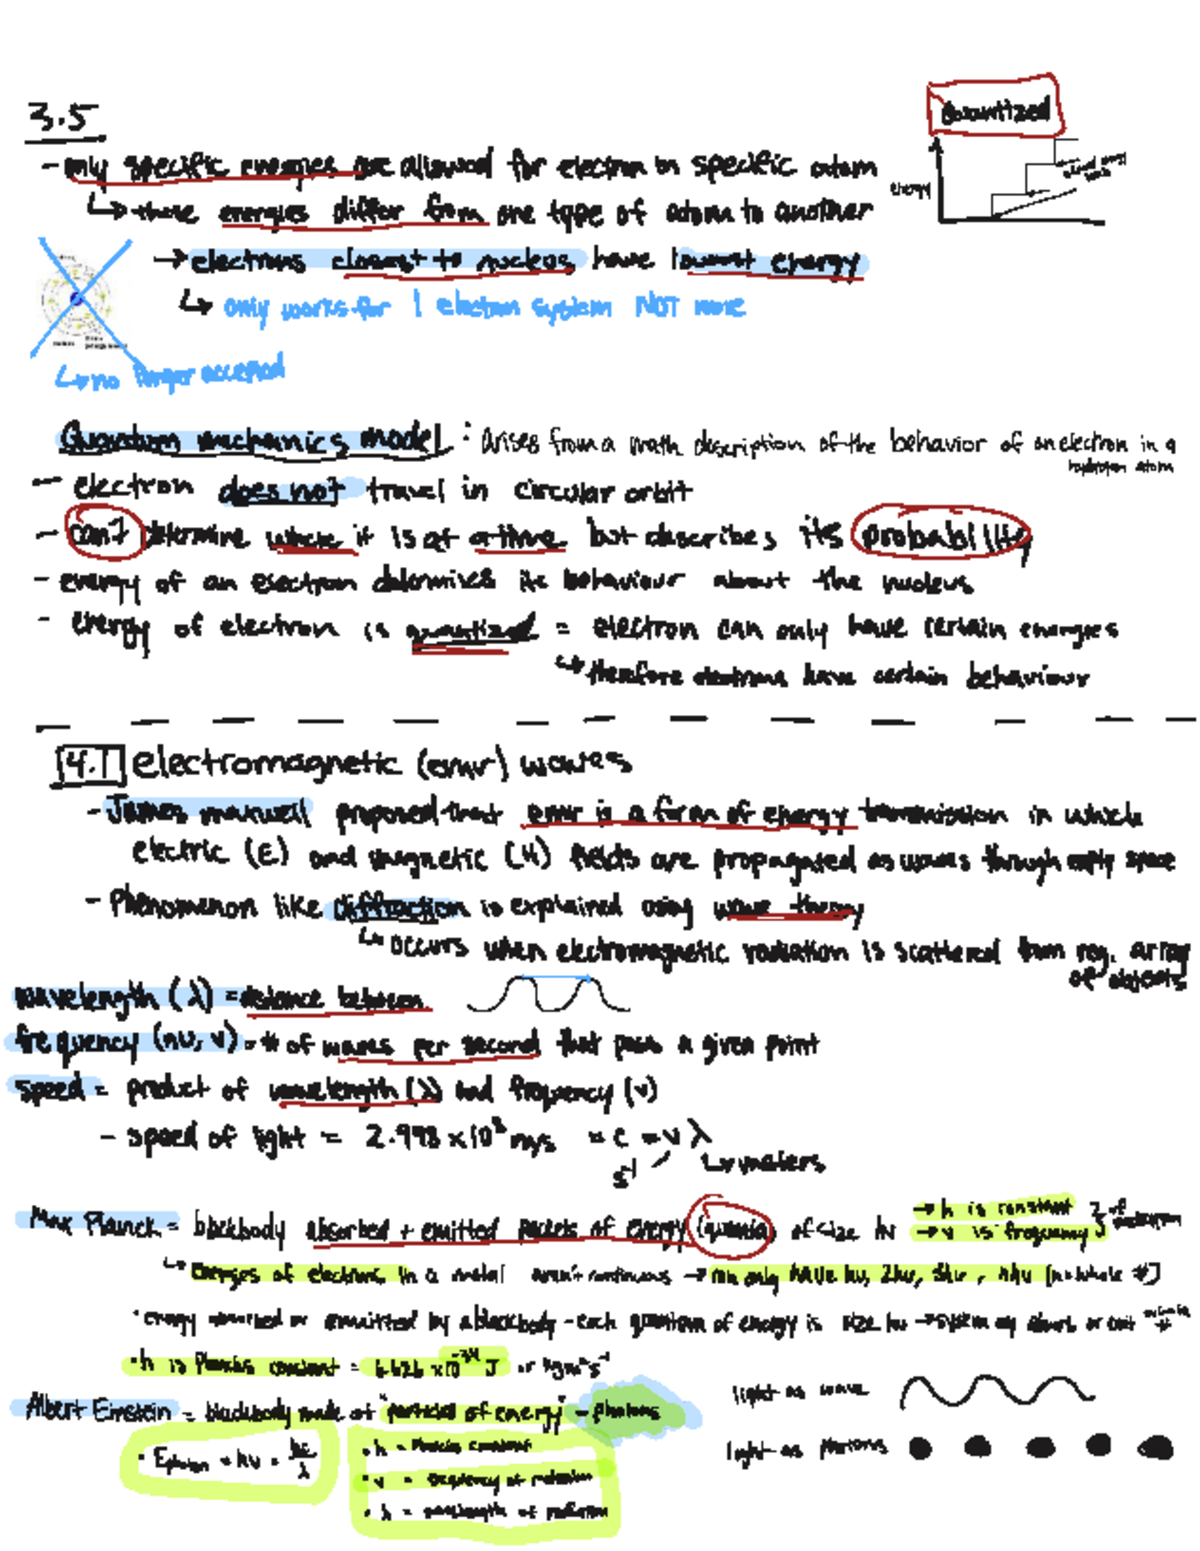 Quantized
3.5
- only specific energies are allowed for electron in specific atom
energy
↳ these energies differ from one type of atom to another
→ electrons closest to nucleus have lowest energy
↳ only works for 1 electron system NOT more
↳ no longer accepted
Quantum mechanics model : arises from a math description of the behavior of an electron in a
hydrogen atom
- electron does not travel in circular orbit
- can't determine where it is at a time but describes its probability
- energy of an electron determines its behaviour about the nucleus
- energy of electron is quantized = electron can only have certain energies
↳ therefore electrons have certain behaviour
4.1 electromagnetic (emr) waves
- James maxwell proposed that emr is a form of energy transmission in which
electric (E) and magnetic (H) fields are propagated as waves through empty space
- Phenomenon like diffraction is explained using wave theory
↳ occurs when electromagnetic radiation is scattered from reg. array
of objects
wavelength (λ) = distance between
frequency (nu, v) = # of waves per second that pass a given point
speed = product of wavelength (λ) and frequency (v)
- speed of light = 2.998 x 10⁸ m/s = c = v λ
s⁻¹ ↳ meters
Max Planck = blackbody absorbed + emitted packets of energy (quanta) of size hv → h is constant
→ v is frequency of radiation
↳ energies of electrons in a metal aren't continuous → can only have hv, 2hv, 3hv, nhv (n=whole #)
• energy absorbed or emitted by a blackbody - each quantum of energy is size hv → system may absorb or emit
• h is Plancks constant = 6.626 x10⁻³⁴ J or kgm²s⁻¹
Albert Einstein = blackbody made of "particles of energy" - photons
light as wave
• Ephoton = hv = hc/λ
• h = Plancks constant
light as photons
• v = frequency of radiation
• λ = wavelength of radiation